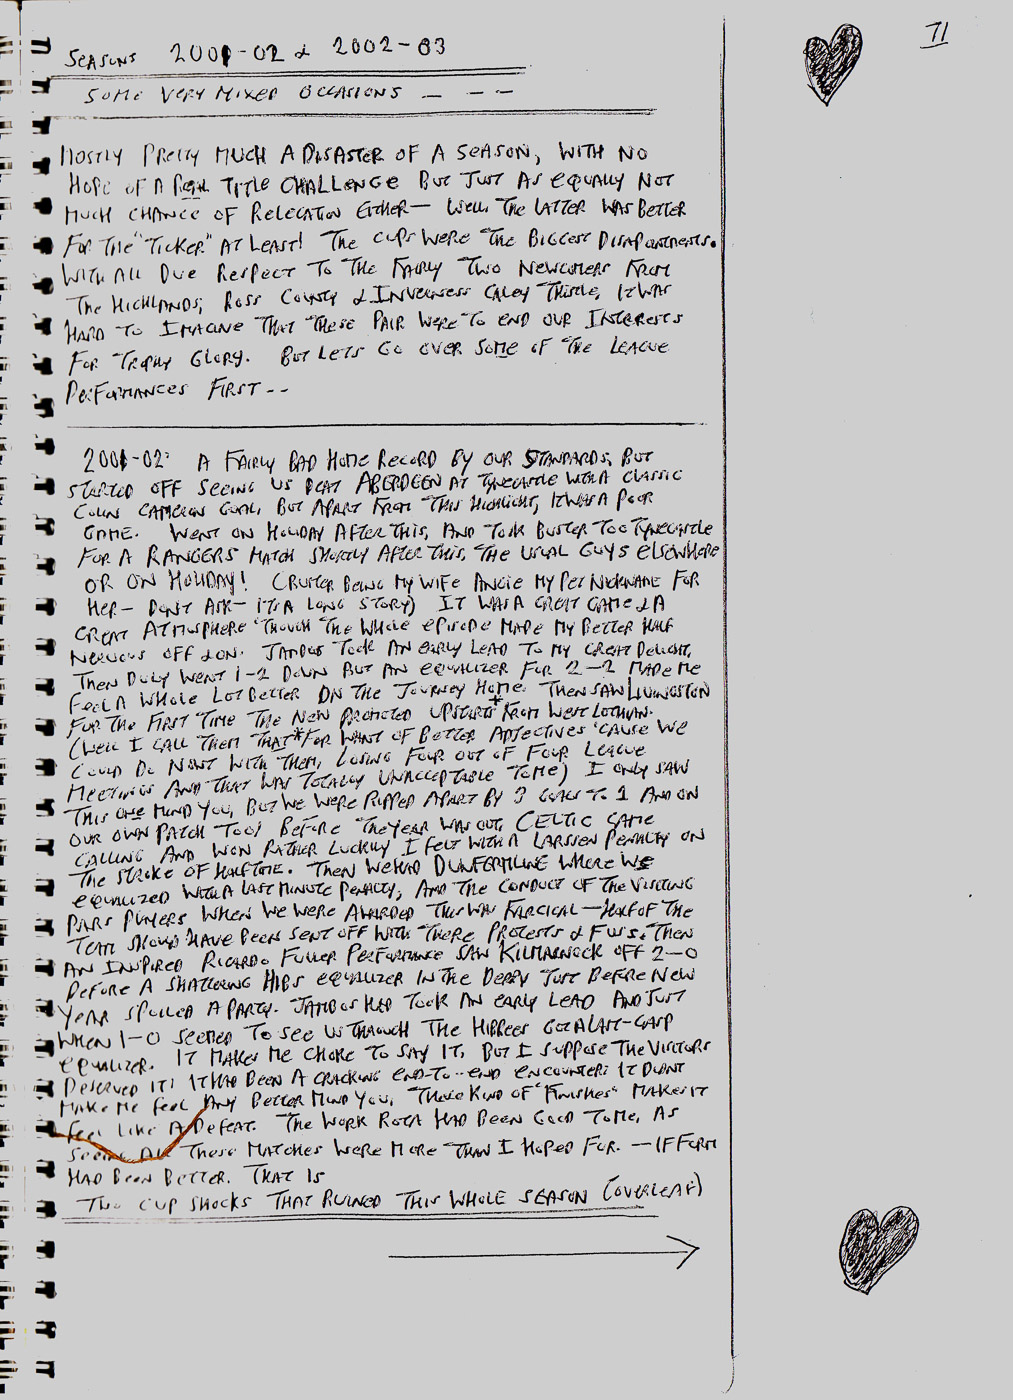 71
SEASONS 2001-02 & 2002-03
SOME VERY MIXED OCCASIONS — — —
MOSTLY PRETTY MUCH A DISASTER OF A SEASON, WITH NO
HOPE OF A REAL TITLE CHALLENGE BUT JUST AS EQUALLY NOT
MUCH CHANCE OF RELEGATION EITHER — WELL THE LATTER WAS BETTER
FOR THE "TICKER" AT LEAST! THE CUPS WERE THE BIGGEST DISAPOINTMENTS.
WITH ALL DUE RESPECT TO THE FAIRLY TWO NEWCOMERS FROM
THE HIGHLANDS, ROSS COUNTY & INVERNESS CALEY THISTLE, IT WAS
HARD TO IMAGINE THAT THESE PAIR WERE TO END OUR INTERESTS
FOR TROPHY GLORY. BUT LETS GO OVER SOME OF THE LEAGUE
PERFORMANCES FIRST --
2001-02: A FAIRLY BAD HOME RECORD BY OUR STANDARDS, BUT
STARTED OFF SEEING US BEAT ABERDEEN AT TYNECASTLE WITH A CLASSIC
COLIN CAMERON GOAL, BUT APART FROM THIS HIGHLIGHT, IT WAS A POOR
GAME. WENT ON HOLIDAY AFTER THIS, AND TOOK BUSTER TOO TYNECASTLE
FOR A RANGERS MATCH SHORTLY AFTER THIS, THE USUAL GUYS ELSEWHERE
OR ON HOLIDAY! ( BEING MY WIFE ANGIE MY PET NICKNAME FOR
HER — DONT ASK — ITS A LONG STORY) IT WAS A GREAT GAME & A
GREAT ATMOSPHERE THOUGH THE WHOLE EPISODE MADE MY BETTER HALF
NERVOUS OFF & ON. JAMBOS TOOK AN EARLY LEAD TO MY GREAT DELIGHT,
THEN DULY WENT 1-2 DOWN BUT AN EQUALIZER FOR 2-2 MADE ME
FEEL A WHOLE LOT BETTER ON THE JOURNEY HOME. THEN SAW LIVINGSTON
FOR THE FIRST TIME THE NEW PROMOTED UPSTARTS* FROM WEST LOTHIAN.
(WELL I CALL THEM THAT* FOR WANT OF BETTER ADJECTIVES 'CAUSE WE
COULD DO NOWT WITH THEM, LOSING FOUR OUT OF FOUR LEAGUE
MEETINGS AND THAT WAS TOTALLY UNACCEPTABLE TO ME) I ONLY SAW
THIS ONE MIND YOU, BUT WE WERE RIPPED APART BY 3 GOALS TO 1 AND ON
OUR OWN PATCH TOO! BEFORE THE YEAR WAS OUT, CELTIC CAME
CALLING AND WON RATHER LUCKILY I FELT WITH A LARSSEN PENALTY ON
THE STROKE OF HALF TIME. THEN WE HAD DUNFERMLINE WHERE WE
EQUALIZED WITH A LAST MINUTE PENALTY, AND THE CONDUCT OF THE VISITING
PARS PLAYERS WHEN WE WERE AWARDED THIS WAS FARCICAL — HALF OF THE
TEAM SHOULD HAVE BEEN SENT OFF WITH THERE PROTESTS & . THEN
AN INSPIRED RICARDO FULLER PERFORMANCE SAW KILMARNOCK OFF 2-0
BEFORE A SHATTERING HIBS EQUALIZER IN THE DERBY JUST BEFORE NEW
YEAR SPOILED A PARTY. JAMBOS HAD TOOK AN EARLY LEAD AND JUST
WHEN 1-0 SEEMED TO SEE US THROUGH THE HIBEES GOT A LAST-GASP
EQUALIZER. IT MAKES ME CHOKE TO SAY IT, BUT I SUPPOSE THE VISITORS
DESERVED IT! IT HAD BEEN A CRACKING END-TO-END ENCOUNTER: IT DIDNT
MAKE ME FEEL ANY BETTER MIND YOU, THESE KIND OF "FINISHES" MAKES IT
FEEL LIKE A DEFEAT. THE WORK ROTA HAD BEEN GOOD TO ME, AS
SEEING ALL THESE MATCHES WERE MORE THAN I HOPED FOR. — IF FORM
HAD BEEN BETTER. THAT IS
TWO CUP SHOCKS THAT RUINED THIS WHOLE SEASON (OVERLEAF)